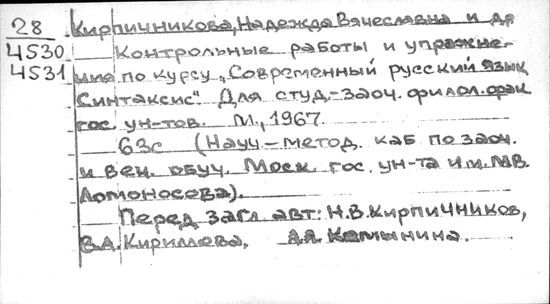 28 Кирпичникова, Надежда Вячеславна и др
4530 Контрольные работы и упражне-
4531 ния по курсу „Современный русский язык
Синтаксис“ Для студ.-заоч. филол. фак
гос. ун-тов. М., 1967.
63с (Науч.-метод. каб. по заоч.
и веч. обуч. Моск. гос. ун-та им. М.В.
Ломоносова).
Перед загл. авт: Н.В. Кирпичников,
В.Д. Кириллова, А.Я. Камынина.